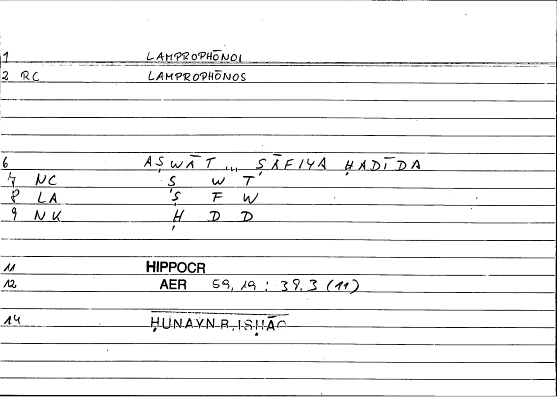 1 LAMPROPHŌNOI
2 RC LAMPROPHŌNOS
6 AṢWĀT ... ṢĀFIYA ḤADĪDA
7 NC Ṣ W T
8 LA Ṣ F W
9 NK Ḥ D D
11 HIPPOCR
12 AER 59,19 : 39,3 (11)
14 ḤUNAYN B. ISḤĀQ